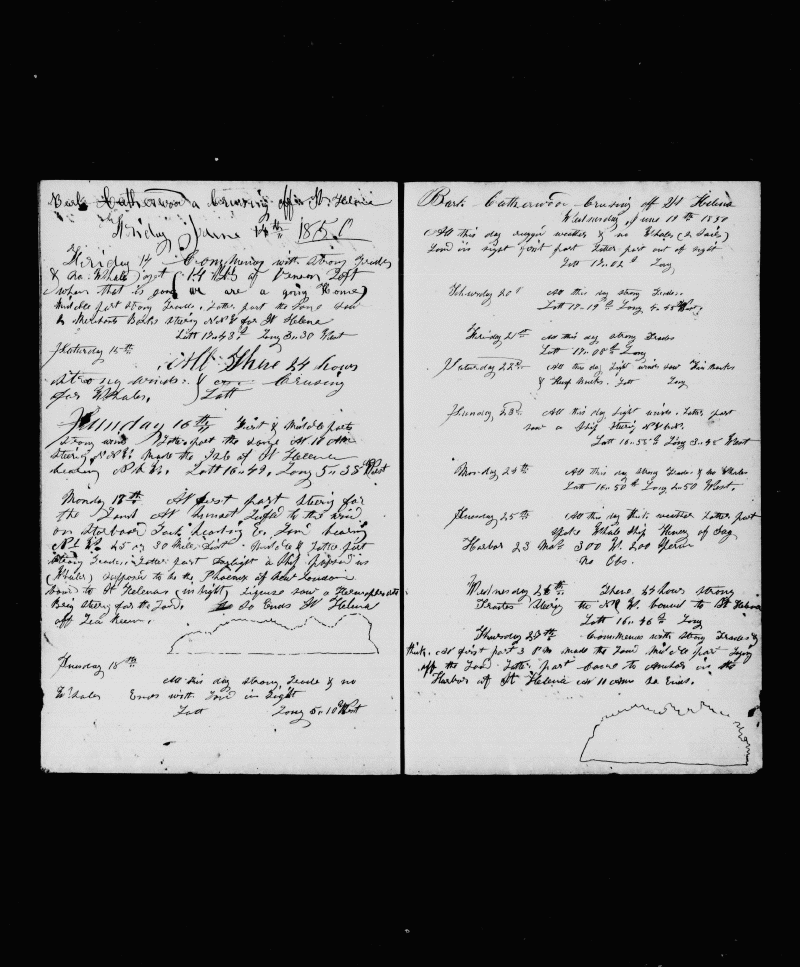 Bark Catherwood a Cruising off St Helena
Friday June 14th 1850
Friday 14 Commencing with strong Trades
& no Whales yet
when that is gone we are a going Home
Middle part strong Trades. Later part the Same saw
2 Merchant Barks steering N N W for St Helena
Latt 17.43 Long 3.30 West
Saturday 15th
All these 24 hours
strong winds & Cruising
for Whales. Latt
Sunday 16th First & Middle parts
strong winds Later part the same At 11 AM
steering N.N.W. made the Isle of St Helena
bearing N.N.W. Latt 16.49. Long 5.38 West
Monday 17th At first part steering for
the Land At sunset Luffed to the wind
on Starboard Tack heading E. Land bearing
N.W. 25 or 30 Miles Dist. Middle & Latter part
strong Trades. Latter part Daylight a Ship passed us
(Whaler) supposed to be the Phoenix of New London
bound to St Helena (in sight) Likewise saw a
Brig steering for the Land. So Ends St Helena
off
Tuesday 18th
All this day strong Trade & no
Whales Ends with Land in Sight
Latt Long 5.10 West
Bark Catherwood Crusing off St Helena
Wednesday June 19th 1850
All this day rugged weather & no Whales (2 Sails)
Land in sight first part Latter part out of sight
Latt 17.02 Long
Thursday 20th All this day strong Trades.
Latt 17.19 Long 4.45 West.
Friday 21st All this day strong Trades
Latt 17.08 Long
Saturday 22nd All this day Light winds saw Fin Backs
& Hump Backs. Latt Long
Sunday 23rd All this day Light winds. Later part
saw a Ship steering N W b N.
Latt 16.55 Long 3.45 West
Monday 24th All this day strong Trades & no Whales
Latt 16.50 Long 2.50 West.
Tuesday 25th All this day thick weather Latter part
spoke Whale Ship Henry of Sag
Harbor 23 Mos 300 W. 200 Sperm
no Obs.
Wednesday 26th These 24 hours strong
Trades steering the N W. bound to St Helena
Latt 16.46 Long
Thursday 27th Commences with strong Trades &
thick. At first part 3 PM made the Land Middle part Laying
off the Land Later part Came to Anchor in the
Harbor of St Helena At 11 AM So Ends.